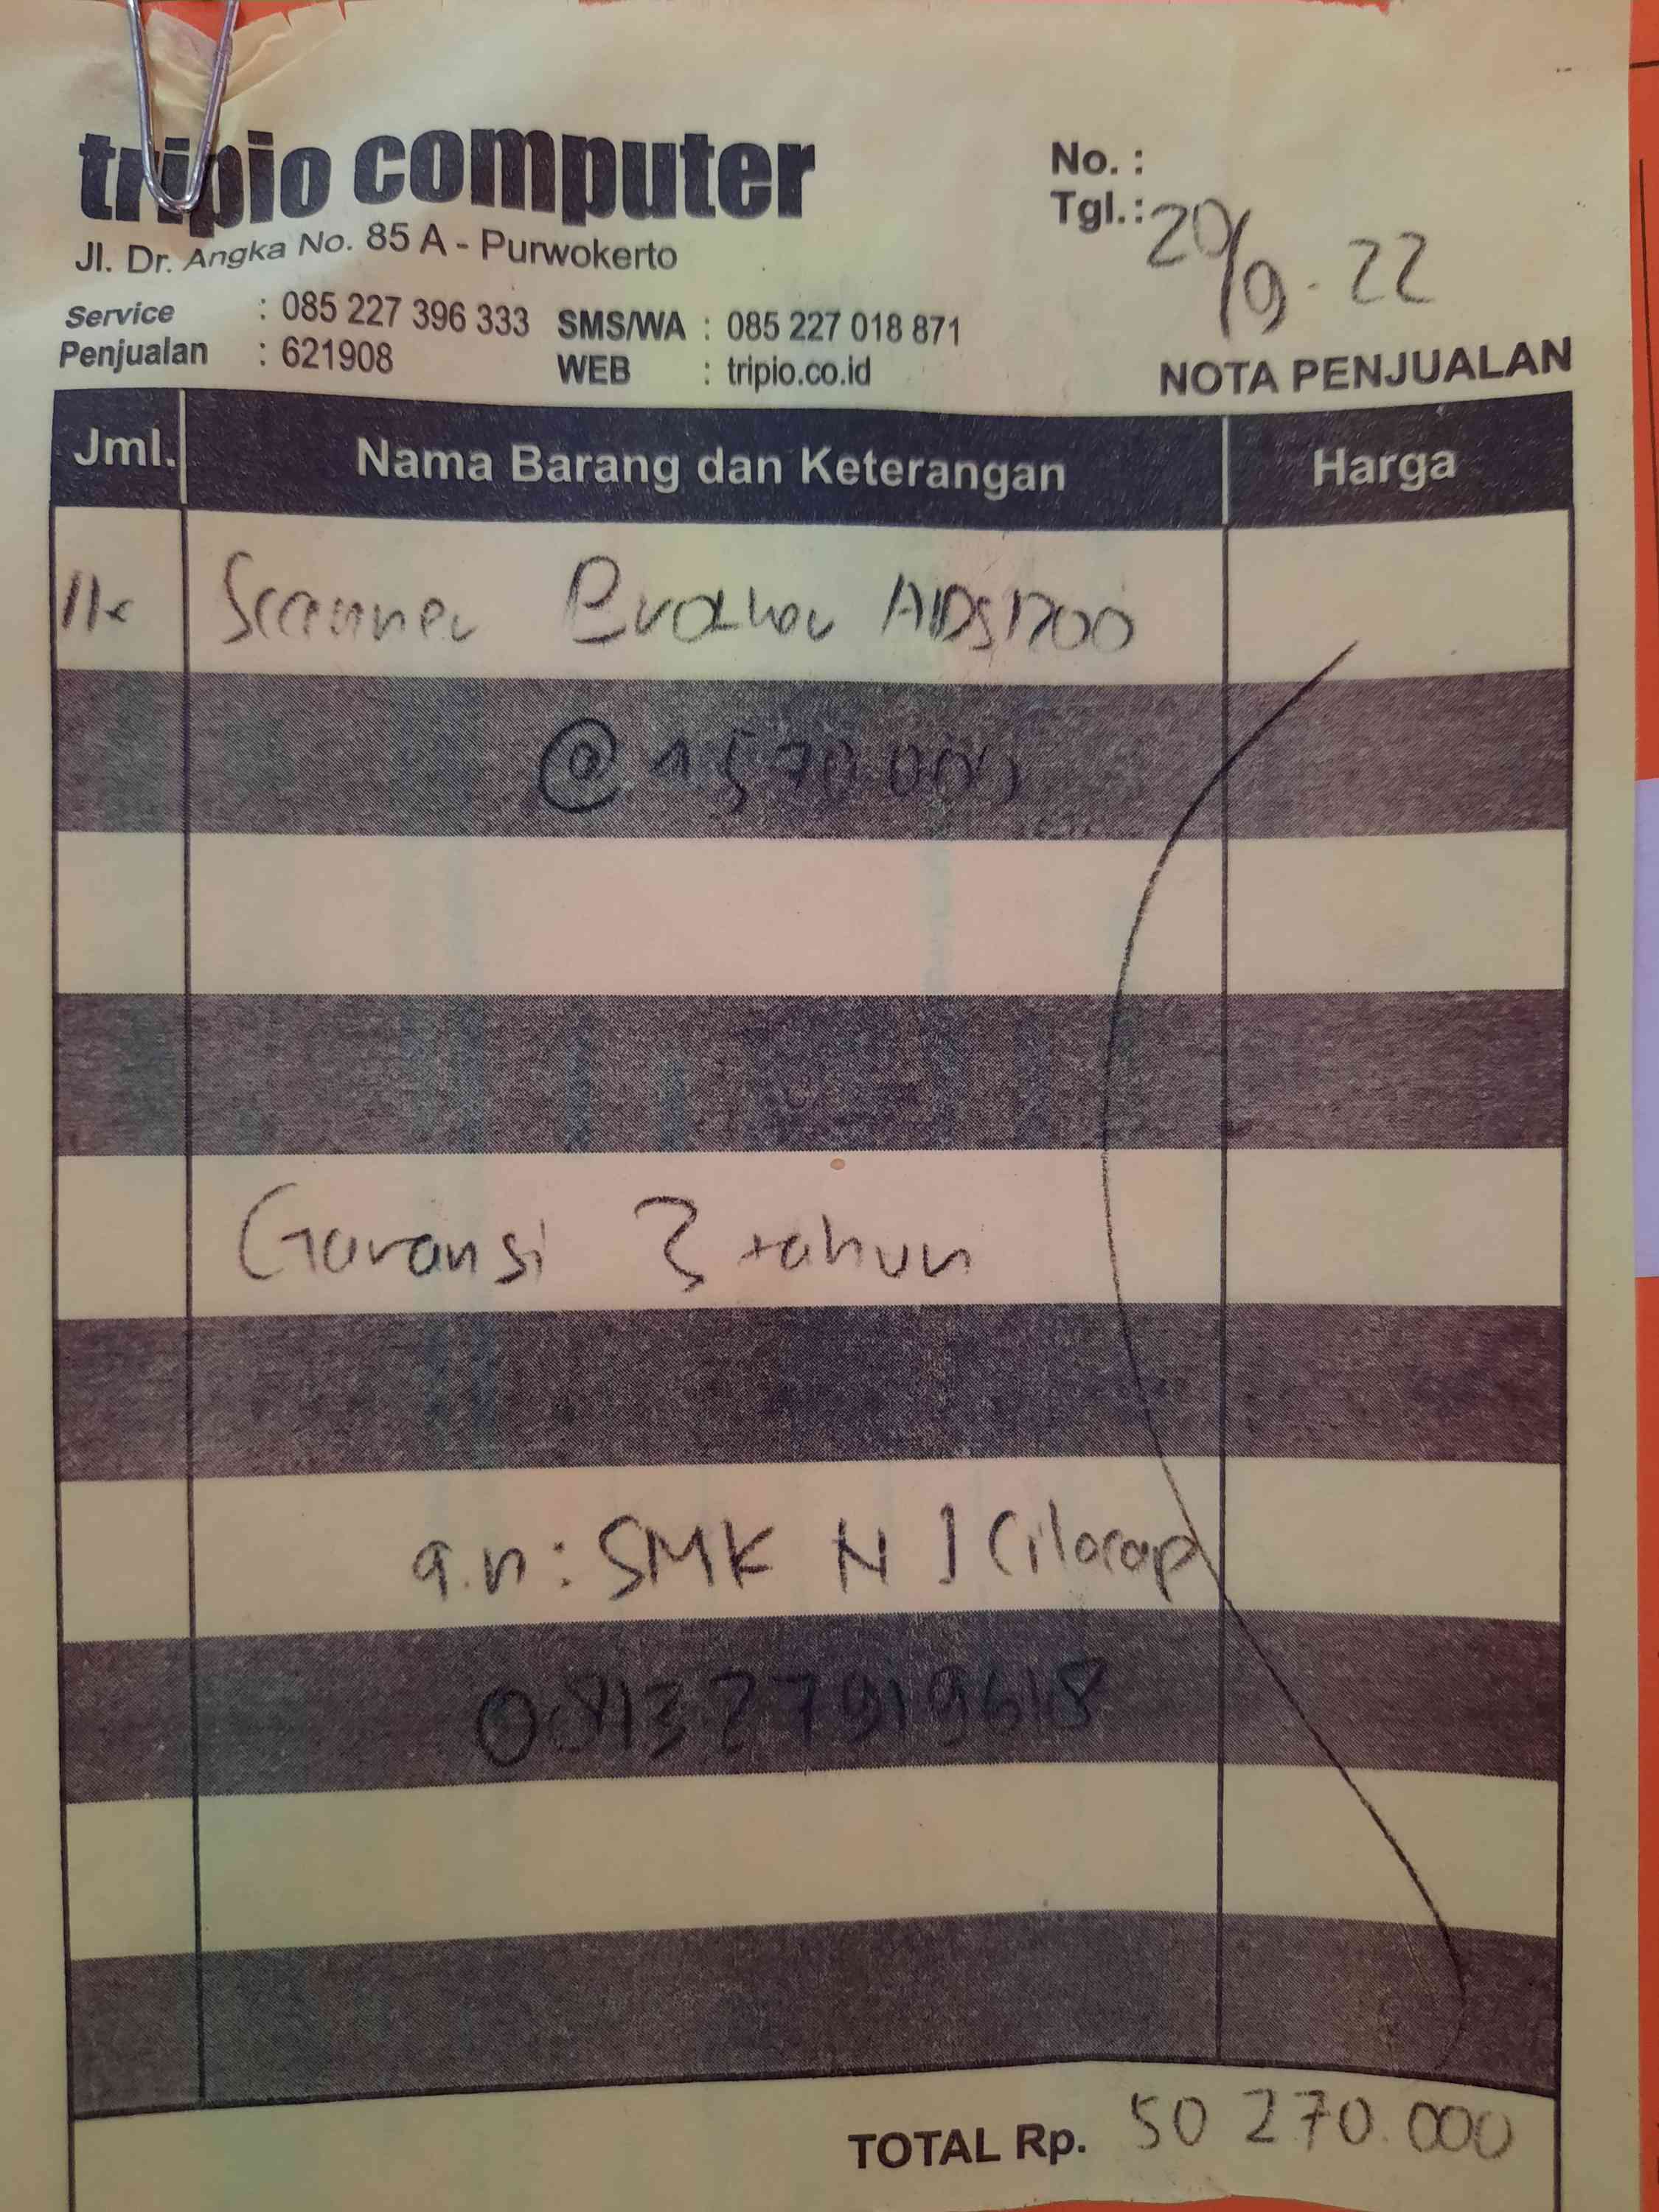 tripio computer
Jl. Dr. Angka No. 85 A - Purwokerto
Service : 085 227 396 333 SMS/WA : 085 227 018 871
Penjualan : 621908 WEB : tripio.co.id
No. :
Tgl.: 20/9. 22
NOTA PENJUALAN
Jml. Nama Barang dan Keterangan Harga
11x Scanner Brother ADS1700
@ 4 570 000
Garansi 3 tahun
a.n: SMK N 1 Cilacap
081327919618
TOTAL Rp. 50 270.000